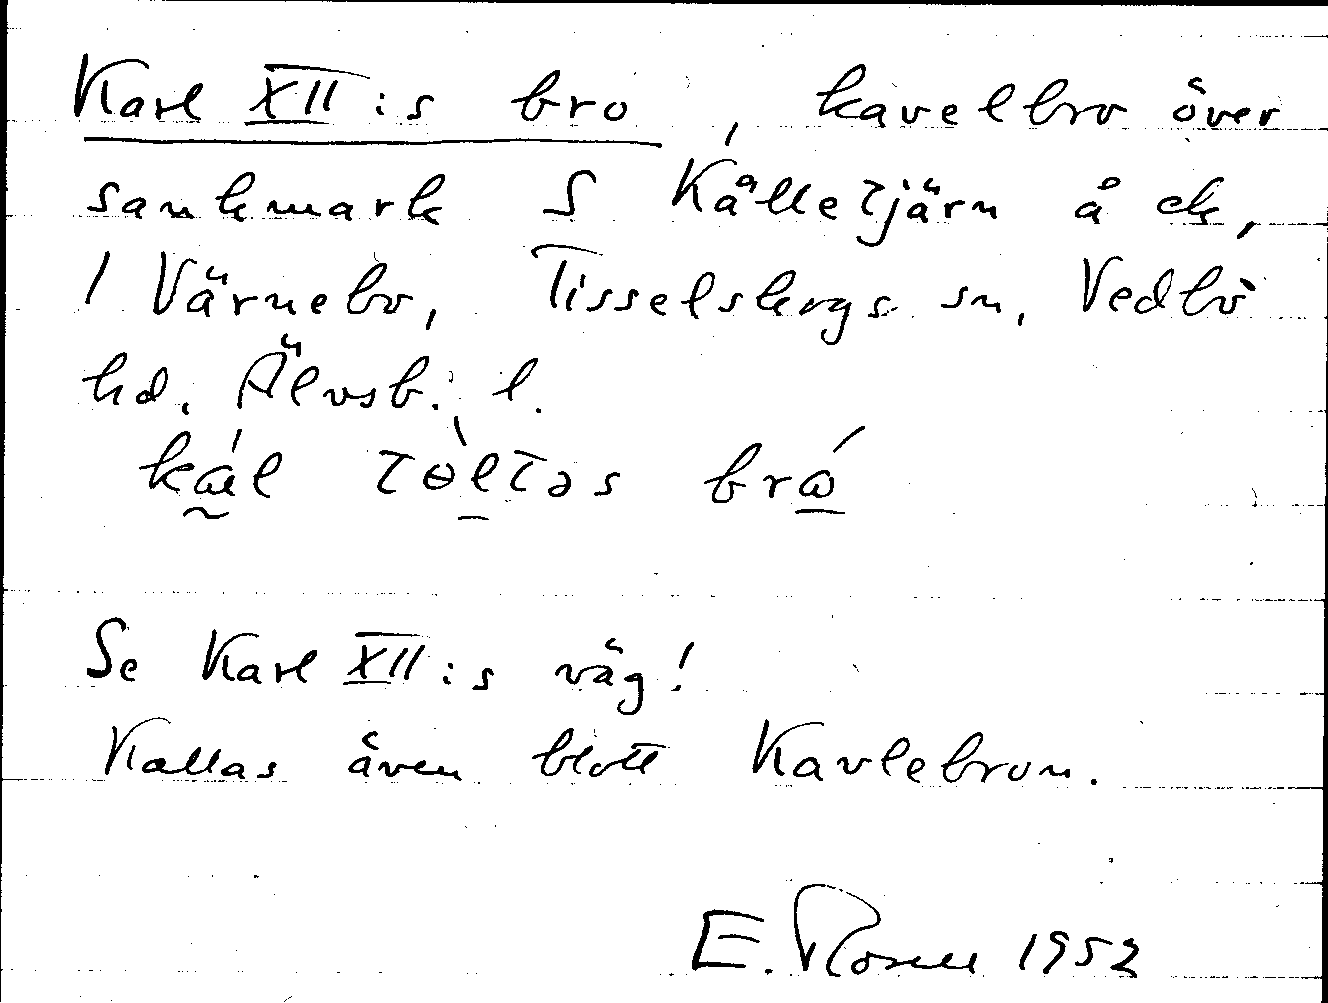 Karl XII:s bro, kavelbro över
sankmark S Kålletjärn å ek,
1 Värnebo, Tisselskogs sn, Vedbo
hd. Älvsb. l.
brɷ́
Se Karl XII:s väg!
Kallas även blott Kavlebron.
E. Rosell 1952